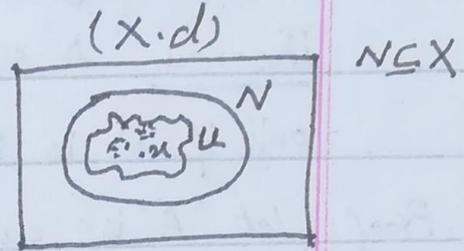 (X.d)
N⊆X
N
u
.x